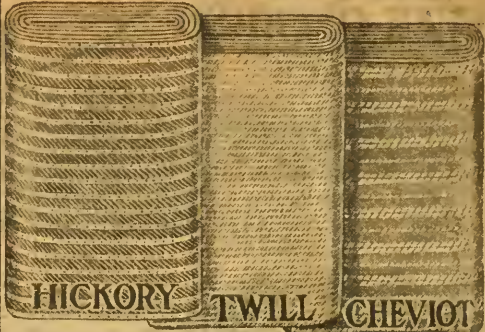 HICKORY TWILL CHEVIOT